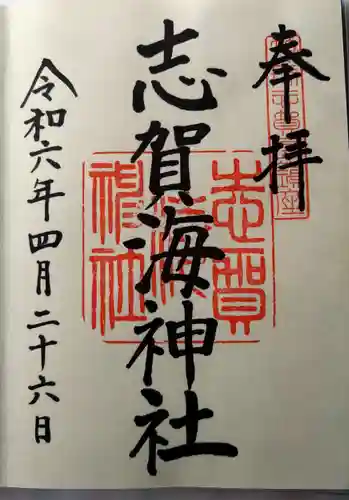 奉拝
志賀海神社
令和六年四月二十六日
志賀
海
神社